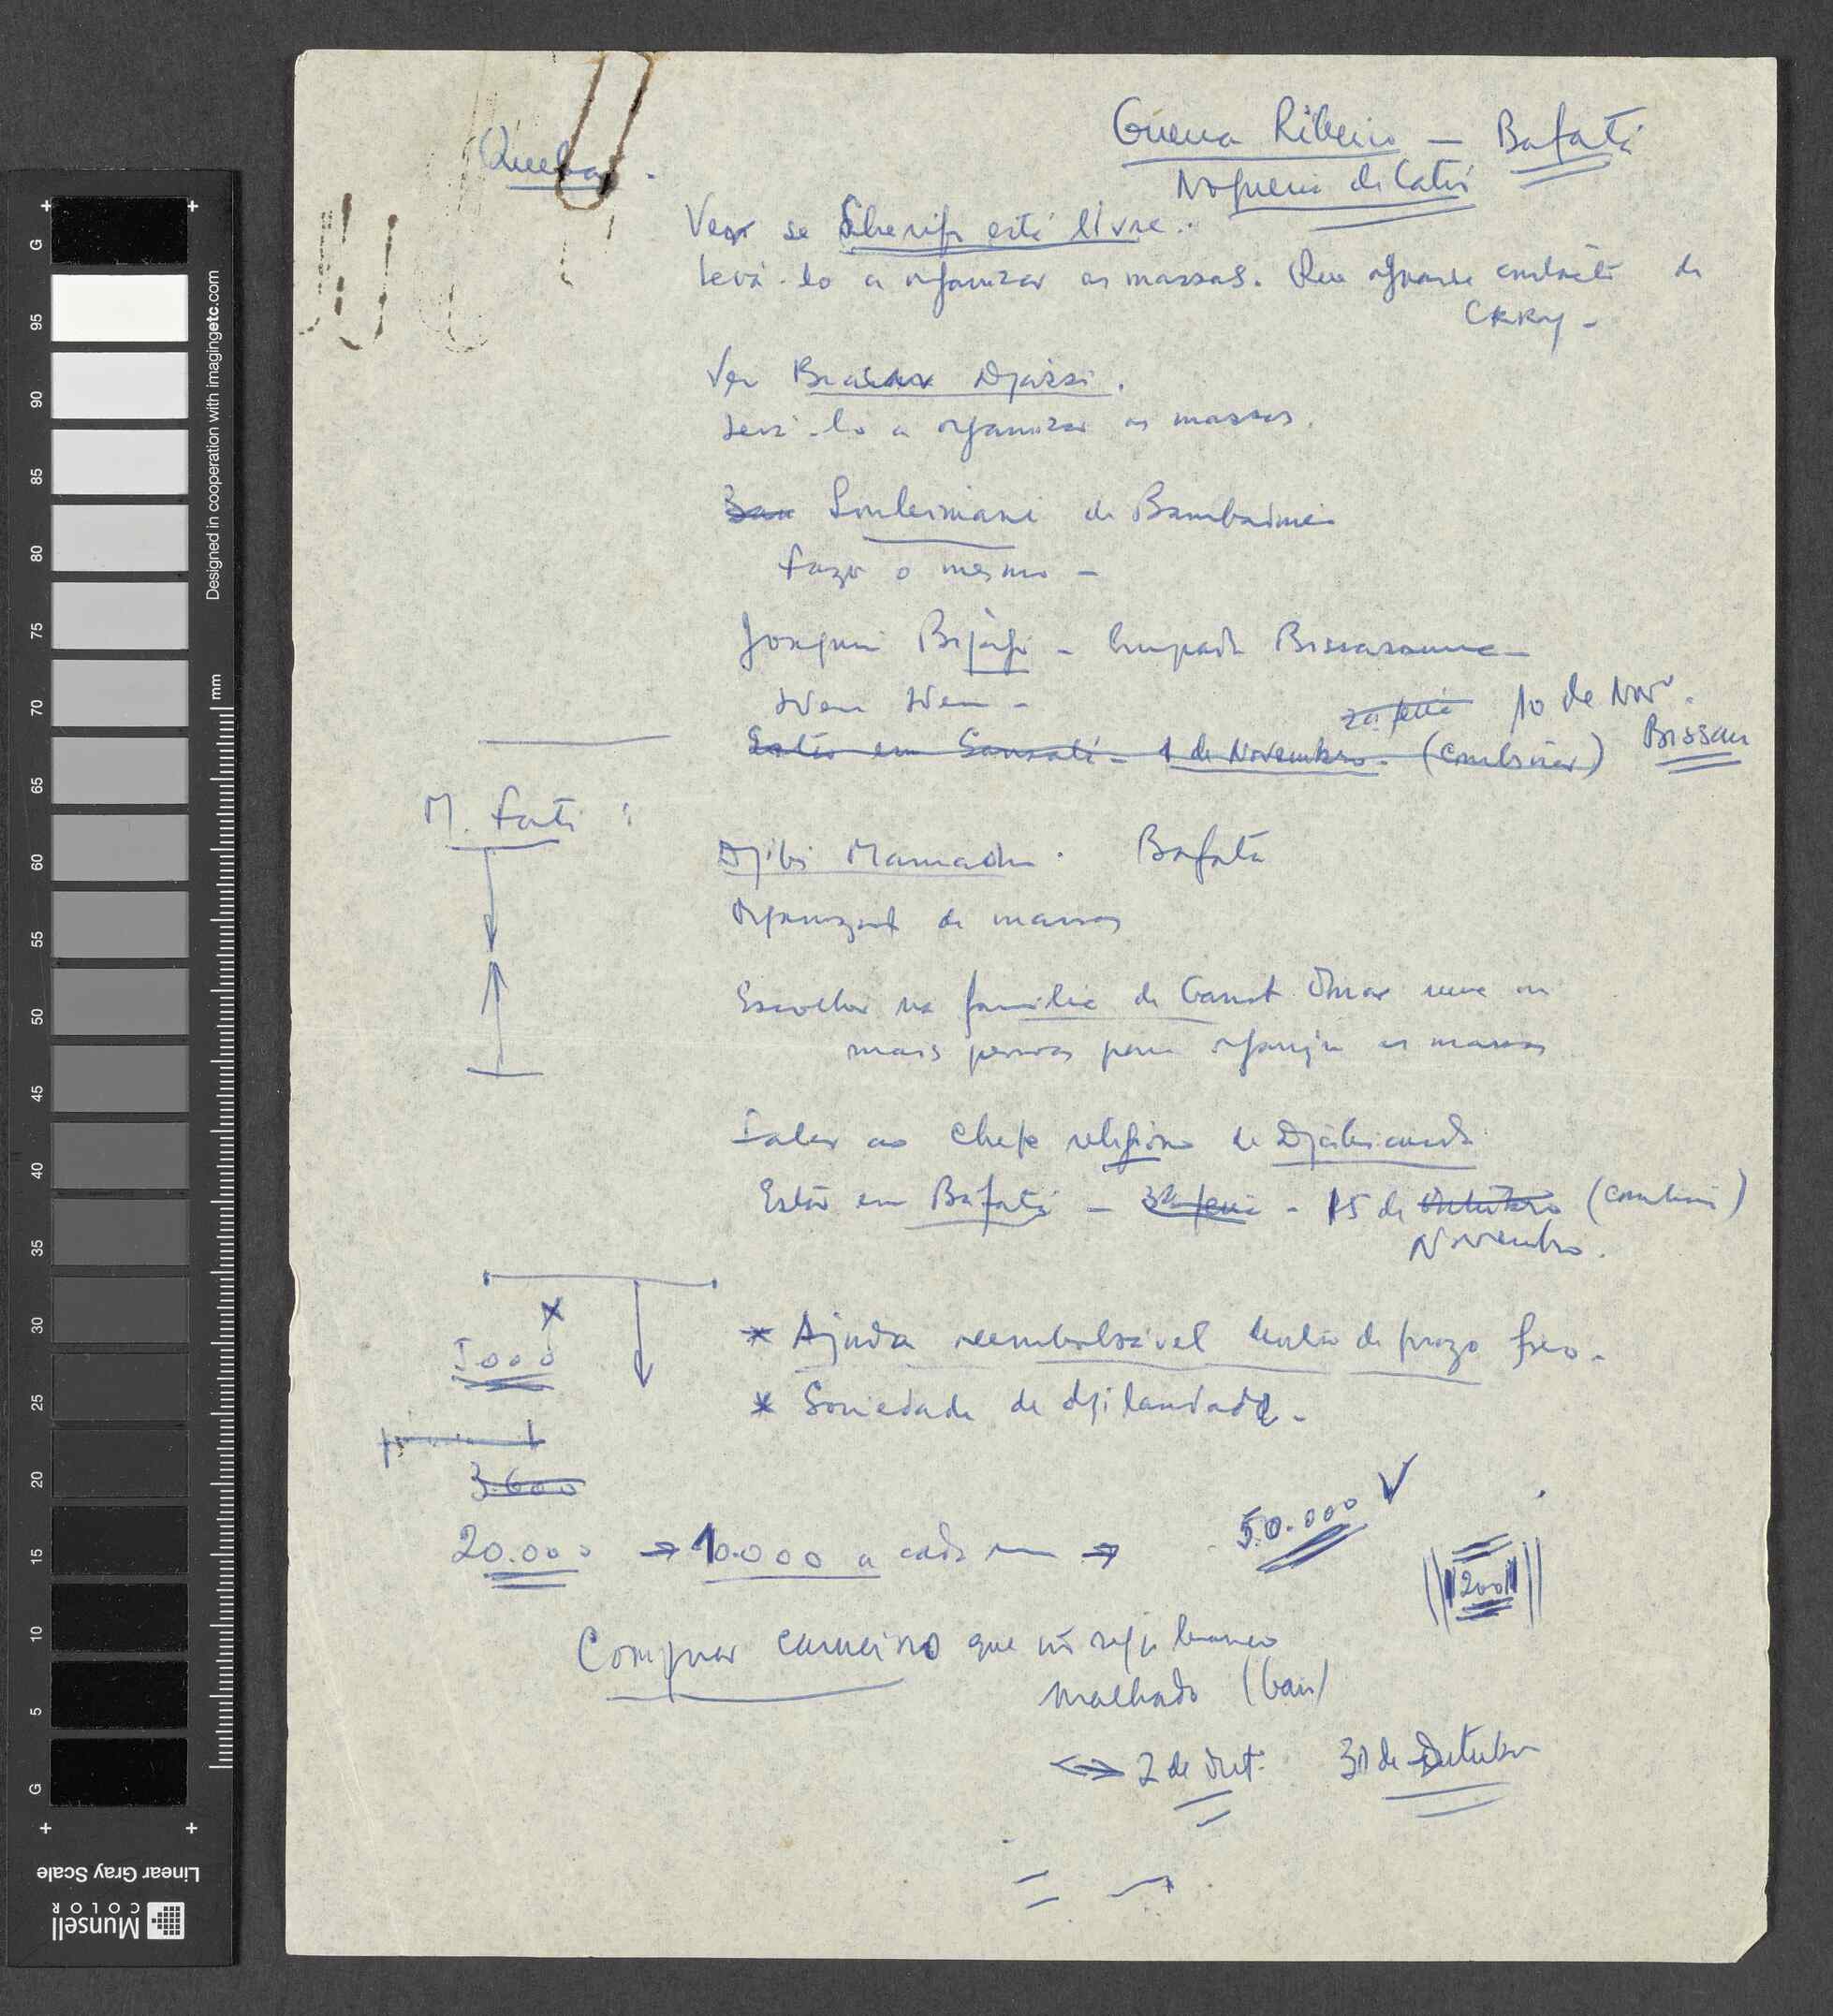 Guerra Ribeiro — Bafatá
Nogueira de Catió
Queba.
Ver se Sherifo está livre.
Levá-lo a organizar as massas. Que aguarde contacto de
CKRY -
Ver Brasar Djassi.
Levá-lo a organizar as massas.
Souleimane de Bambadinca
fazer o mesmo -
Joaquim Bijagó - Bissassema
Idem Idem -
2a. feira 10 de Novº.
Estão em Sansalé - 1 de Novembro - (Combinar) Bissau
M. Forte :
Djibi Mamadu. Bafatá
Organizant de massas
Escolher na família de Omar uma ou
mais pessoas para organizar as massas
Falar ao chefe religioso de Djabicunda
Estar em Bafatá - 3a. feira - 15 de Outubro (combinar)
Novembro.
x
5000
* Ajuda reembolsável dentro de prazo fixo.
* Sociedade de djilandade.
3.600
50.000
20.000 → 10.000 a cada um →
200
Comprar carneiro que não seja branco
malhado
↔ 2 de Out. 31 de Outubro
G 95 90 85 80 75 70 65 60 55 50 45 40 35 30 25 20 15 10 5 G
mm
Designed in cooperation with imagingetc.com
Linear Gray Scale
Munsell
COLOR